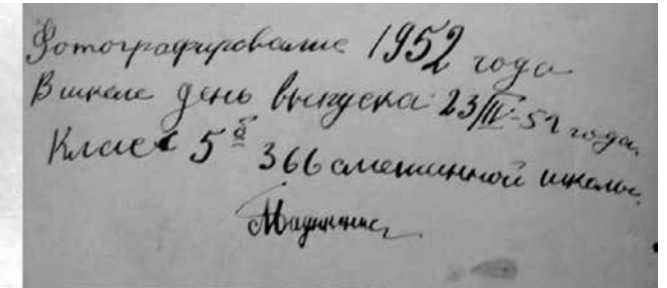 Фотографирование 1952 года
В школе день выпуска 23/IV-52 года.
Класс 5 б 366 смешанной школы.